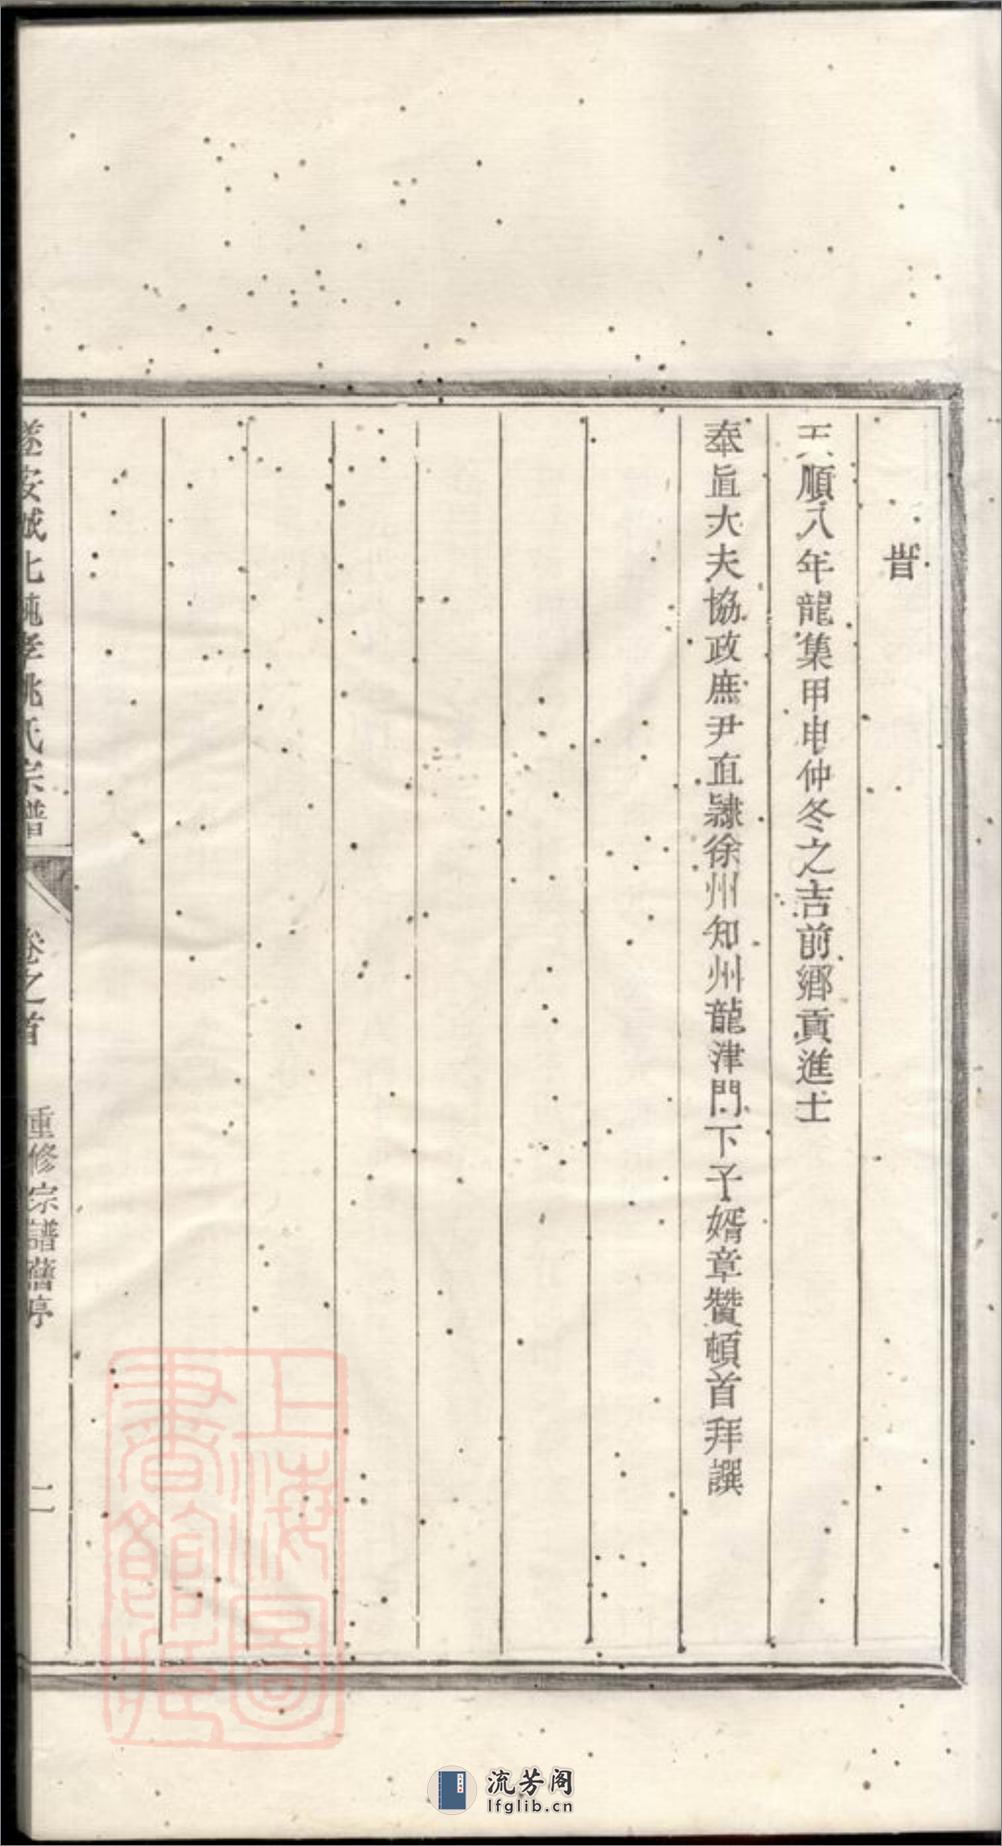 旹
天順八年龍集甲申仲冬之吉前鄉貢進士
奉直大夫協政庶尹直隸徐州知州龍津門下子婿章贊頓首拜譔
遂安城北純孝姚氏宗譜 卷之首 重修宗譜舊序 二
上海圖書館藏
流芳阁
lfglib.cn